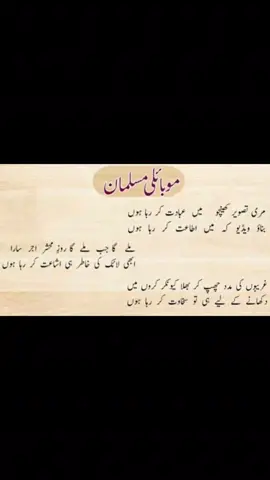 موبائلی مسلمان
مری تصویر کھینچو میں عبادت کر رہا ہوں
بناؤ ویڈیو کہ میں اطاعت کر رہا ہوں
ملے گا جب ملے گا روزِ محشر اجر سارا
ابھی لائک کی خاطر ہی اشاعت کر رہا ہوں
غریبوں کی مدد چھپ کر بھلا کیونکر کروں میں
دکھانے کے لیے ہی تو سخاوت کر رہا ہوں